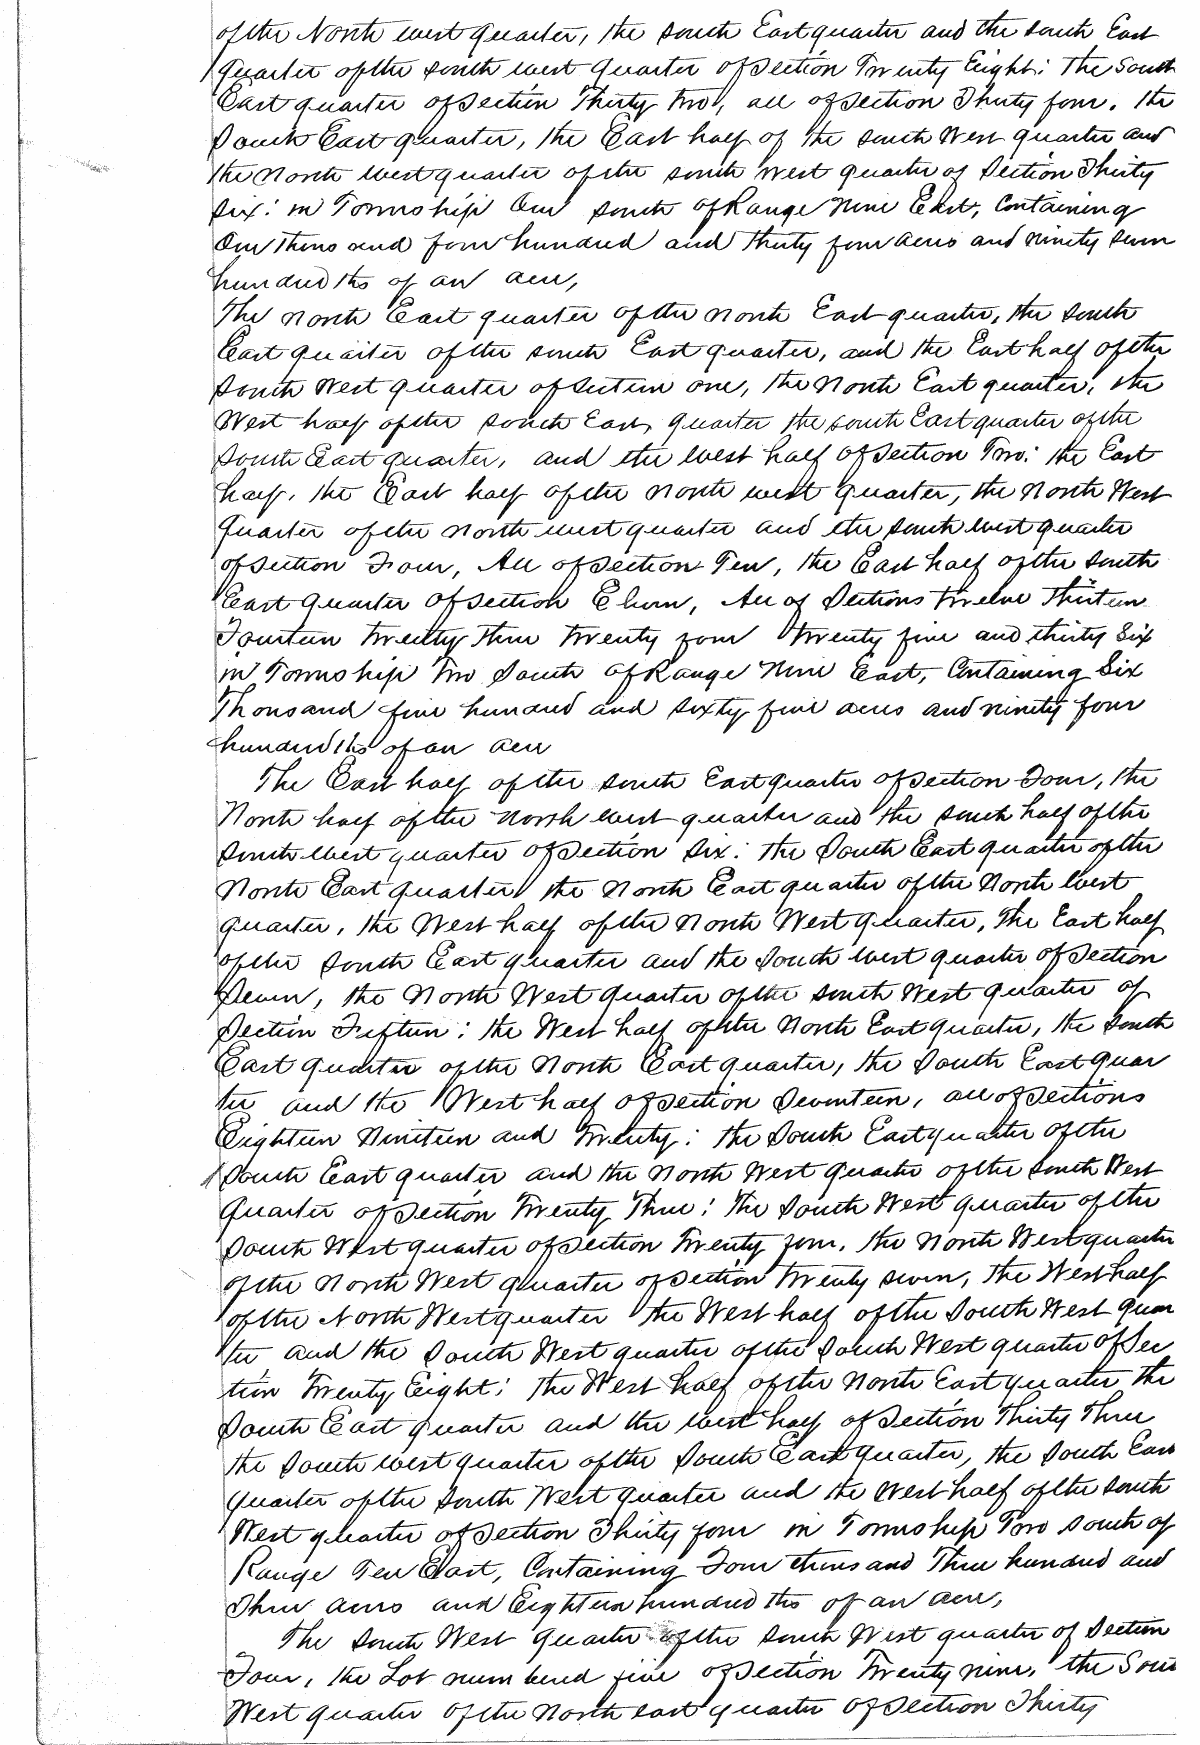 of the North west quarter, the South East quarter and the South East
quarter of the South west quarter of Section Twenty Eight: The South
East quarter of Section Thirty Two, all of Section Thirty four. the
South East quarter, the East half of the South West quarter and
the North west quarter of the South West quarter of Section Thirty
Six: in Township One South of Range Nine East, Containing
One Thousand four hundred and thirty four acres and ninety seven
hundredths of an acre,
The North East quarter of the North East quarter, the South
East quarter of the South East quarter, and the East half of the
South West quarter of Section one, the North East quarter, the
West half of the South East quarter the South East quarter of the
South East quarter, and the West half of Section Two: the East
half, the East half of the North west quarter, the North West
quarter of the North west quarter and the South west quarter
of Section Four, All of Section Ten, the East half of the South
East quarter of Section Eleven, All of Sections Twelve Thirteen
Fourteen Twenty Three Twenty four Twenty five and thirty Six
in Township Two South of Range Nine East, Containing Six
Thousand five hundred and sixty five acres and ninety four
hundredths of an acre
The East half of the South East quarter of Section Four, the
North half of the North west quarter and the South half of the
South West quarter of Section Six: the South East quarter of the
North East quarter, the North East quarter of the North West
quarter, the West half of the North West quarter, The East half
of the South East quarter and the South west quarter of Section
Seven, the North West quarter of the South West quarter of
Section Fifteen: the West half of the North East quarter, the South
East quarter of the North East quarter, the South East quar
ter and the West half of Section Seventeen, all of Sections
Eighteen Nineteen and Twenty: the South East quarter of the
South East quarter and the North West quarter of the South West
quarter of Section Twenty Three: The South West quarter of the
South West quarter of Section Twenty four. the North West quarter
of the North West quarter of Section Twenty seven, The West half
of the North West quarter the West half of the South West quar
ter and the South West quarter of the South West quarter of Sec
tion Twenty Eight: the West half of the North East quarter the
South East quarter and the West half of Section Thirty Three
the South west quarter of the South East quarter, the South East
quarter of the South West quarter and the West half of the South
West quarter of Section Thirty four in Township Two South of
Range Ten East, Containing Four thousand Three hundred and
Three acres and Eighteen hundredths of an acre,
The South West quarter of the South West quarter of Section
Four, the Lot numbered five of Section Twenty nine, the Sou
West quarter of the North east quarter of Section Thirty